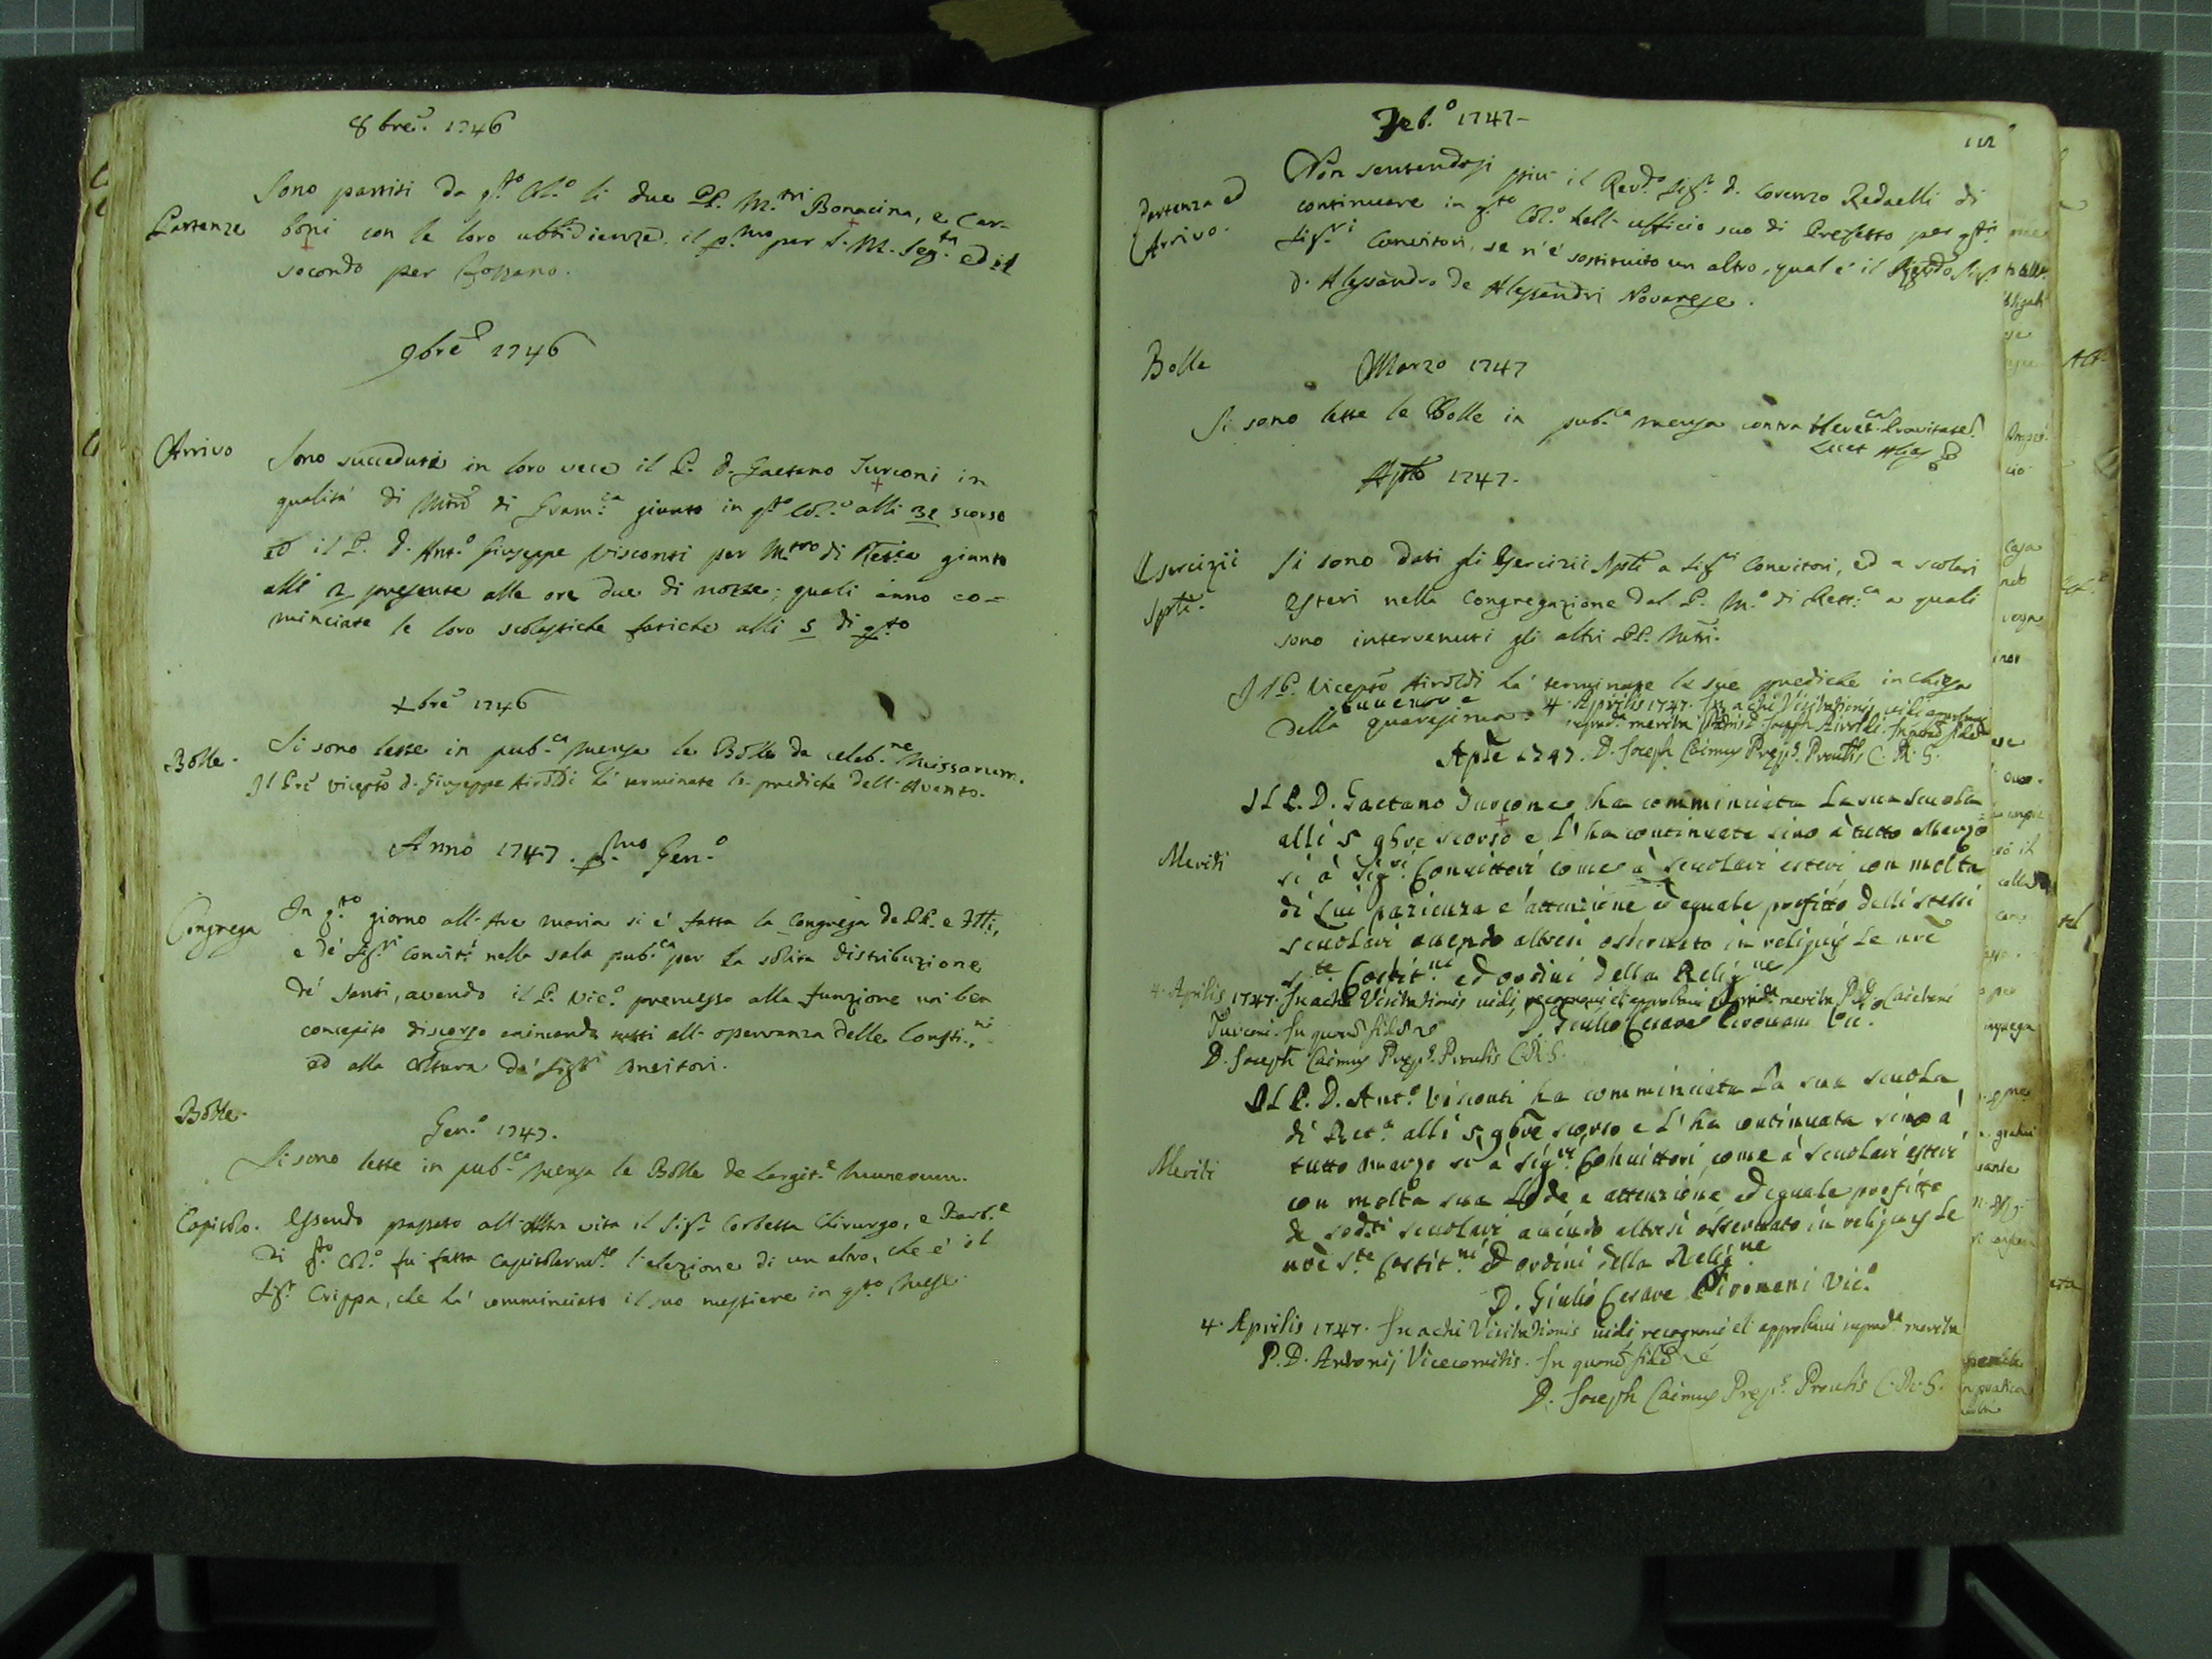 8bre. 1746
Sono partiti da q.sto Col.o li due PP. M.tri Bonacina, e Car-
Partenze
boni con le loro ubbidienze, il p.mo per S. M. Seg.ta ed il
secondo per Lossano.
9bre 1746
Arrivo
Sono succeduti in loro vece il P. D. Gaetano Turconi in
qualità di Mro di Gram.ca giunto in q.sto Col.o alli 31 scorso
ed il P. D. Ant.o Giuseppe Visconti per M.tro di Ret.ca giunto
alli 2 presente alle ore due di notte; quali anno co-
minciate le loro scolastiche fatiche alli 5 di q.sto
Xbre 1746
Bolle.
Si sono lesse in pub.ca mensa le Bolle de celeb.ne Missarum.
Il Pre Vicepto D. Giuseppe Airoldi hà terminate le prediche dell'Avento.
Anno 1747. p.mo Gen.o
Congrega
In q.to giorno all'Ave Maria si è fatta la Congrega de PP. e Flli,
e de Sig.ri Convit.i nella sala pub.ca per la solita distribuzione
de' Santi, avendo il P. Vic.o premesso alla funzione un ben
concepito discorso animando tutti all'osservanza delle Consti.ni,
ed alla coltura de' Sig.ri Convitori.
Bolle.
Gen.o 1747.
Si sono lesse in pub.ca mensa le Bolle de Largit.e Munerum.
Capitolo.
Essendo passato all'altra vita il Sig.r Corbetta Chirurgo, e Barb.e
di q.sto Col.o fu fatta capitolarm.te l'elezione di un altro, che è il
Sig.r Crippa, che hà comminciato il suo mestiere in q.sto Mese.
Feb.o 1747-
112
Partenza ed
Arrivo.
Non sentendosi più il Rev.do Sig.r D. Lorenzo Redaelli di
continuare in q.sto Col.o nell'ufficio suo di Prefetto per q.sti
Sig.ri Convitori, se n'è sostituito un altro, qual è il Revdo Sig.r
D. Alessandro de Alessandri Novarese.
Bolle
Marzo 1747
Si sono lesse le Bolle in pub.ca mensa contra Heret.cam Pravitatem
Licet Alias
Aple 1747.
Esercizii
Splti.
Si sono dati gli Esercizii Splti a Sig.ri Convitori, ed a scolari
Esteri nella Congregazione dal P. M.o di Rett.ca a quali
sono intervenuti gli altri PP. Mtri.
Il P. Vicepto Airoldi hà terminate le sue prediche in chiesa
della quaresima. 4. Aprilis 1747. In actu Visitationis vidi
suprad.a merita Patris D. Joseph Airoldi. In quor. fidem
Aple 1747. D. Joseph Caimus Prep.s Provlis C. R. S.
Meriti
Il P. D. Gaetano Turcone ha comminciata la sua scuola
alli 5 9bre scorso e l'ha continuata sino à tutto Marzo
si à Sig.ri Convittori come à scuolari esteri con molta
di Lui pazienza e attenzione ed eguale profitto delli stessi
scuolari avendo altresì osservato in reliquis le nre
S.te Costit.ni ed ordini della Relig.ne
4. Aprilis 1747. In actu Visitationis vidi, recognovi et approbavi suprad.a merita P. D. Caietani
Turconi. In quor. fidem
D. Giulio Cesare Vic.
D. Joseph Caimus Prep.s Provlis C.R.S.
Meriti
Il P. D. Ant.o Visconti ha comminciata la sua scuola
di Ret.a alli 5, 9bre scorso e l'ha continuata sino à
tutto marzo si à Sig.ri Convittori, come à scuolari esteri
con molta sua Lode e attenzione ed eguale profitto
de sod.ti scuolari avendo altresì osservato in reliquis le
nre S.te Costit.ni ed ordini della Relig.ne
D. Giulio Cesare Vic.o
4. Aprilis 1747. In actu Visitationis vidi recognovi et approbavi suprad.a merita
P. D. Antonij Vicecomitis. In quor. fidem
D. Joseph Caimus Prep.s Provlis C. R. S.